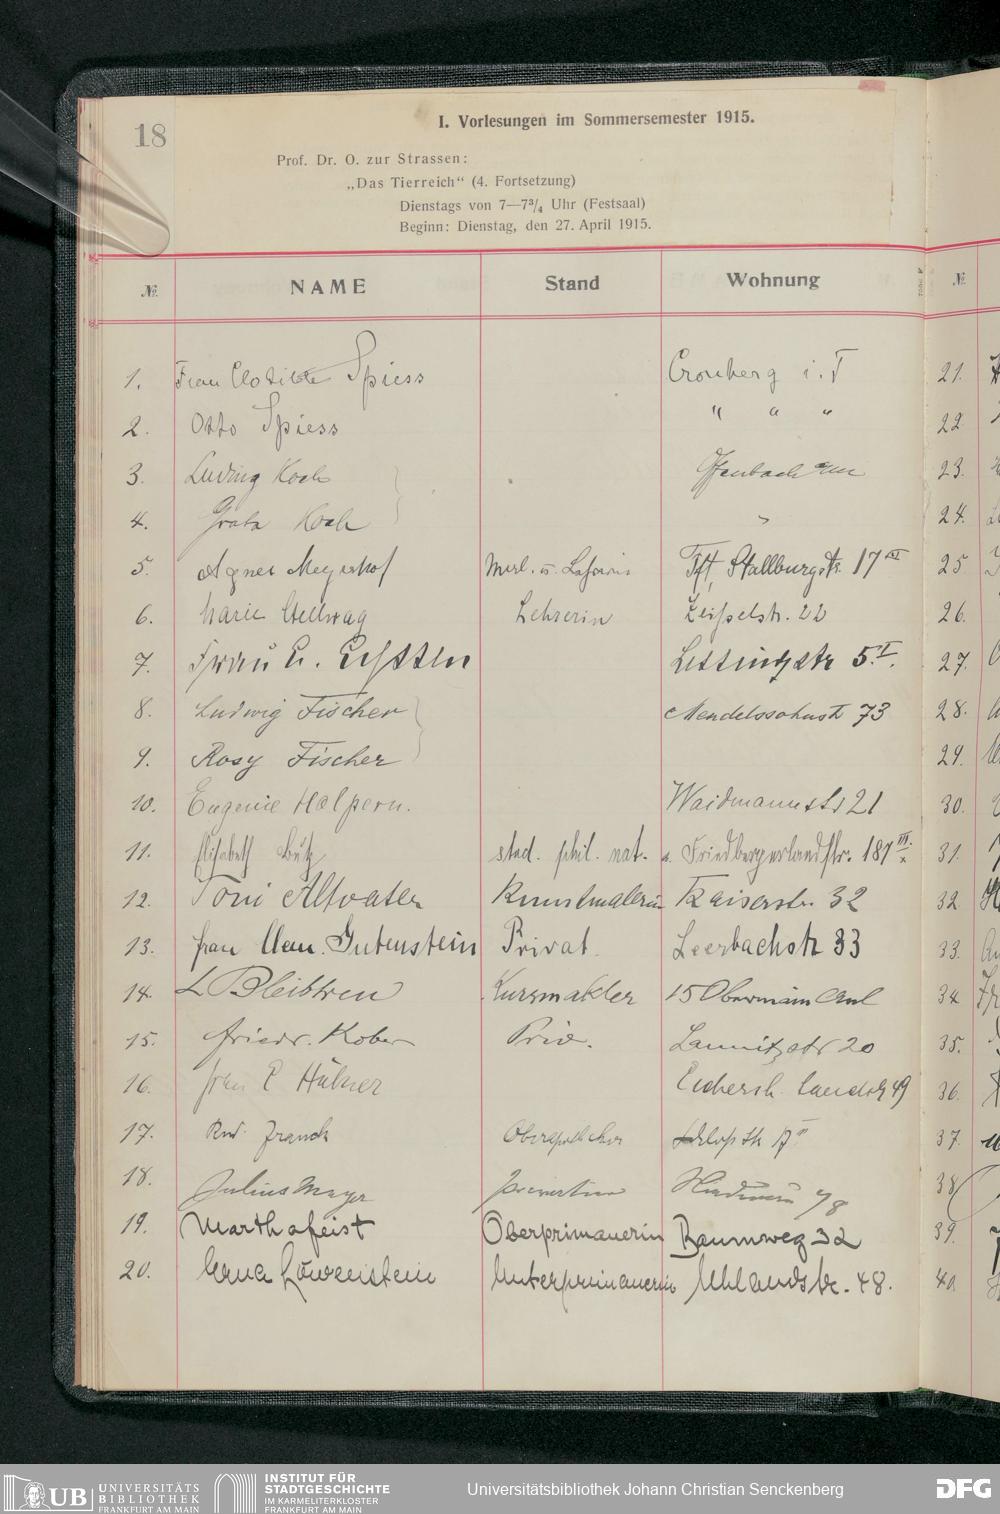 18
I. Vorlesungen im Sommersemester 1915.
Prof. Dr. O. zur Strassen:
„Das Tierreich“ (4. Fortsetzung)
Dienstags von 7—7¾ Uhr (Festsaal)
Beginn: Dienstag, den 27. April 1915.
№ NAME Stand Wohnung №
1. Frau Clotilde Spiess Cronberg i. T 21.
2. Otto Spiess " " " 22
3. Ludwig Koch Offenbach a/M 23.
4. Koch " 24.
5. Agnes Meyerhof Mal. u. Fft, Stallburgstr. 17 25
6. Marie Stellwag Lehrerin Zeißelstr. 22 26.
7. Frau E. Lessingstr 5. I. 27.
8. Ludwig Fischer Mendelssohnstr 73 28.
9. Rosy Fischer 29.
10. Eugenie Halpern. Waidmannstr 21 30.
11. Elisabeth Butz stud. phil. nat. Friedbergerlandstr. 187 III. 31.
12. Toni Altvater Kunstmalerin Kaiserstr. 32 32.
13. Frau Clem. Gutenstein Privat. Leerbachstr 33 33.
14. L Bleibtreu Kursmakler 15 Obermain Anl 34
15. Friedr. Kober Priv. Launitzstr 20 35.
16. Frau E Hübner Eschersh. Landstr 49 36.
17. Rud. Franck Oberapotheker 37.
18. Julius Mayer 38
19. Martha Feist Oberprimanerin Baumweg 32 39.
20. Erna Löwenstein Unterprimanerin Uhlandstr. 48. 40
UB UNIVERSITÄTS
BIBLIOTHEK
FRANKFURT AM MAIN
INSTITUT FÜR
STADTGESCHICHTE
IM KARMELITERKLOSTER
FRANKFURT AM MAIN
Universitätsbibliothek Johann Christian Senckenberg
DFG